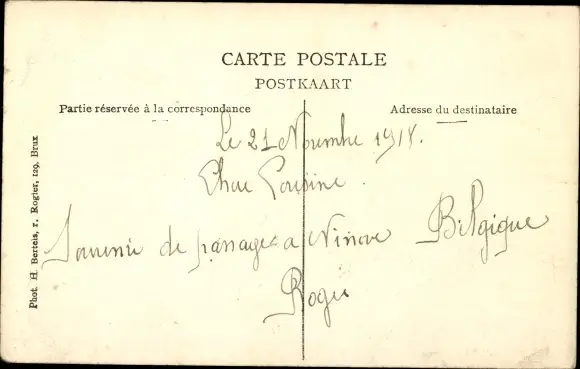 CARTE POSTALE
POSTKAART
Partie réservée à la correspondance
Adresse du destinataire
Le 21 Novembre 1918.
Chere Cousine.
Souvenir de passage a Ninove Belgique
Roger
Phot. H. Berteis, r. Rogier, 129, Brux